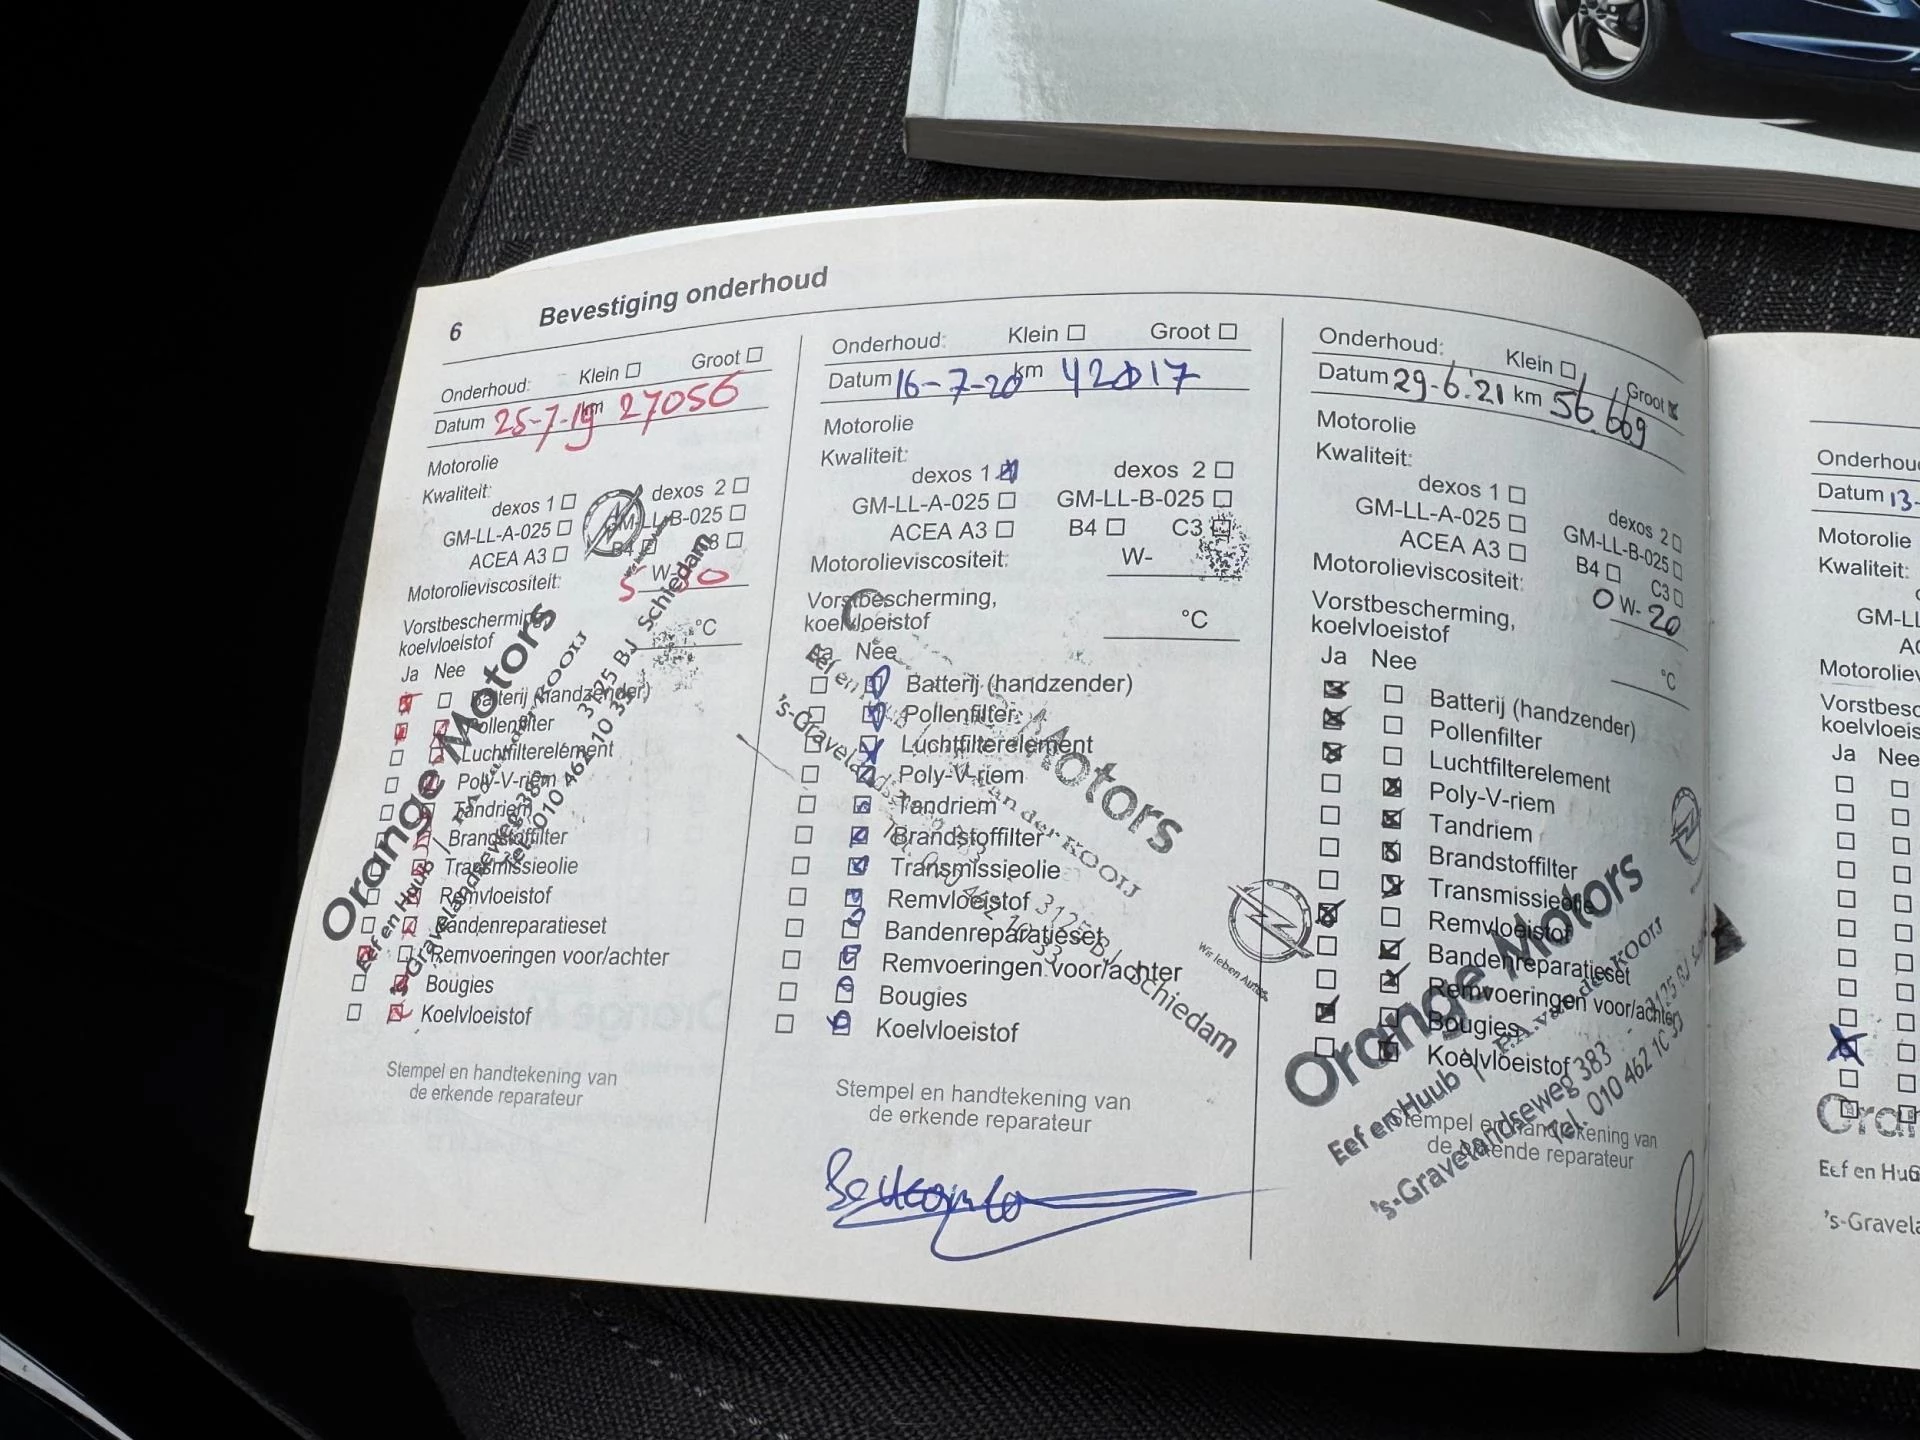 6 Bevestiging onderhoud
Onderhoud: Klein Groot
Datum 25-7-19 km 27056
Motorolie
Kwaliteit:
dexos 1 dexos 2
GM-LL-A-025 GM-LL-B-025
ACEA A3 B4
Motorolieviscositeit: 5 W-30
Vorstbescherming,
koelvloeistof °C
Ja Nee
Batterij (handzender)
Pollenfilter
Luchtfilterelement
Poly-V-riem
Tandriem
Brandstoffilter
Transmissieolie
Remvloeistof
Bandenreparatieset
Remvoeringen voor/achter
Bougies
Koelvloeistof
Orange Motors
Eef en Huub | P.A. van der KOOIJ
's-Gravelandseweg 383 3125 BJ Schiedam
Tel. 010 462 10 33
Stempel en handtekening van
de erkende reparateur
Onderhoud: Klein Groot
Datum 16-7-20 km 42017
Motorolie
Kwaliteit:
dexos 1 dexos 2
GM-LL-A-025 GM-LL-B-025
ACEA A3 B4 C3
Motorolieviscositeit: W-
Vorstbescherming,
koelvloeistof °C
Ja Nee
Batterij (handzender)
Pollenfilter
Luchtfilterelement
Poly-V-riem
Tandriem
Brandstoffilter
Transmissieolie
Remvloeistof
Bandenreparatieset
Remvoeringen voor/achter
Bougies
Koelvloeistof
Motors
Eef en Huub | van der KOOIJ
's-Gravelandseweg 383 3125 BJ Schiedam
Tel. 010 462 10 33
Wir leben Autos.
Stempel en handtekening van
de erkende reparateur
Onderhoud: Klein Groot
Datum 29-6-'21 km 56.669
Motorolie
Kwaliteit:
dexos 1 dexos 2
GM-LL-A-025 GM-LL-B-025
ACEA A3 B4 C3
Motorolieviscositeit: 0 W-20
Vorstbescherming,
koelvloeistof °C
Ja Nee
Batterij (handzender)
Pollenfilter
Luchtfilterelement
Poly-V-riem
Tandriem
Brandstoffilter
Transmissieolie
Remvloeistof
Bandenreparatieset
Remvoeringen voor/achter
Bougies
Koelvloeistof
Orange Motors
Eef en Huub | P.A. van der KOOIJ
's-Gravelandseweg 383 3125 BJ
Tel. 010 462 10 33
Stempel en handtekening van
de erkende reparateur
Onderhou
Datum 13-
Motorolie
Kwaliteit:
GM-LL
Motoroliev
Vorstbesc
koelvloeis
Ja Nee
Eef en Hu
's-Gravela